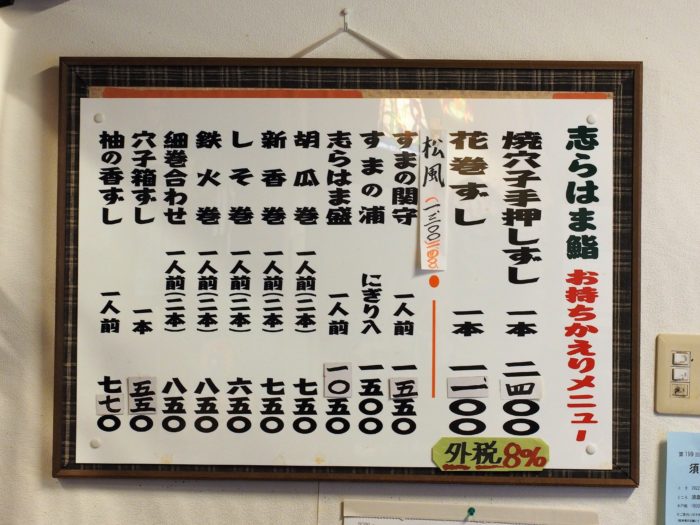 志らはま鮨 お持ちかえりメニュー
焼穴子手押しずし 一本 二四〇〇
花巻ずし 一本 一一〇〇
松風
すまの関守 一人前 一五五〇
すまの浦 にぎり入 一五〇〇
志らはま盛 一人前 一〇五〇
胡瓜巻 一人前(二本) 七五〇
新香巻 一人前(二本) 七五〇
しそ巻 一人前(二本) 六五〇
鉄火巻 一人前(二本) 八五〇
細巻合わせ 一人前(二本) 八五〇
穴子箱ずし 一本 五五〇
柚の香ずし 一人前 七七〇
外税8%